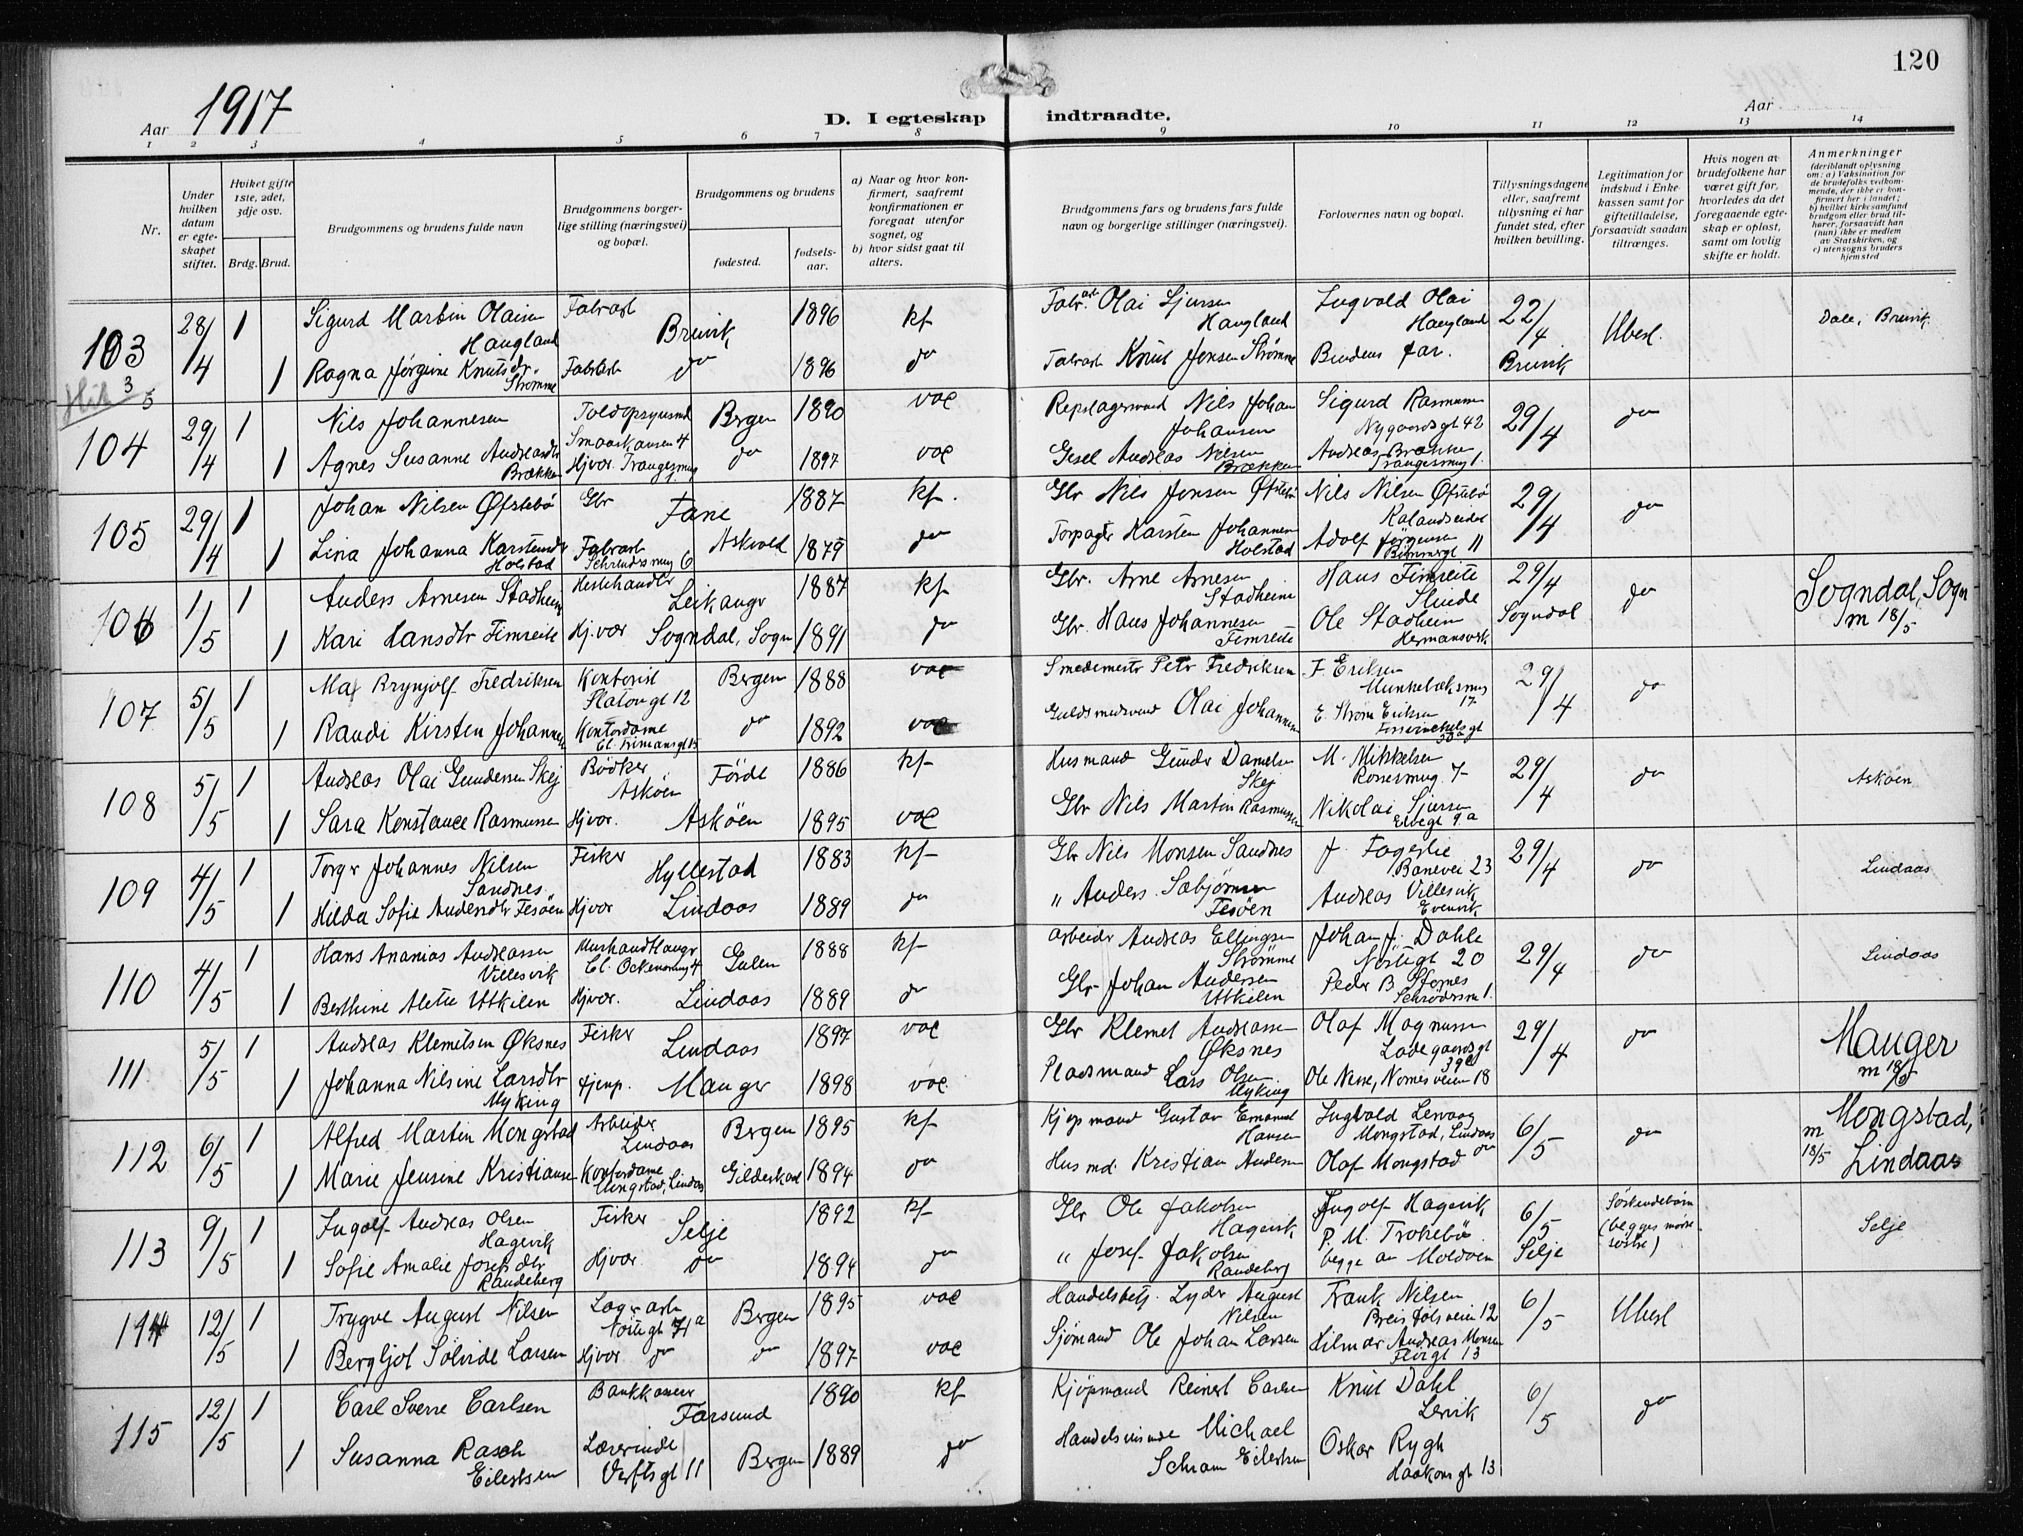 120
Aar 1917
D. I egteskap indtraadte.
Aar
1 2 3 4 5 6 7 8 9 10 11 12 13 14
Nr.
Under hvilken datum er egteskapet stiftet.
Hviket gifte 1ste, 2det, 3dje osv.
Brdg. Brud.
Brudgommens og brudens fulde navn
Brudgommens borgerlige stilling (næringsvei) og bopæl.
Brudgommens og brudens
fødested.
fødselsaar.
a) Naar og hvor konfirmert, saafremt konfirmationen er foregaat utenfor sognet, og
b) hvor sidst gaat til alters.
Brudgommens fars og brudens fars fulde navn og borgerlige stillinger (næringsvei).
Forlovernes navn og bopæl.
Tillysningsdagene eller, saafremt tillysning ei har fundet sted, efter hvilken bevilling.
Legitimation for indskud i Enkekassen samt for giftetilladelse, forsaavidt saadan tiltrænges.
Hvis nogen av brudefolkene har været gift før, hvorledes da det foregaaende egteskap er opløst, samt om lovlig skifte er holdt.
Anmerkninger
(deriblandt oplysning om: a) Vaksination for de brudefolks vedkommende, der ikke er konfirmert her i landet;
b) hvilket kirkesamfund brudgom eller brud tilhører, forsaavidt han (hun) ikke er medlem av Statskirken, og
c) utensogns bruders hjemsted
103 28/4 1 Sigurd Martin Olaisen Haugland Fabrarb Breivik 1896 kf Fabr.arb Olai Sjursen Haugland Ingvald Olai Haugland 22/4 Ubesl. Dale, Breivik
1 Ragna Jørgine Knutsdr. Strømme Fabrarb do 1896 do Fabrarb Knut Jensen Strømme Brudens far. Breivik
104 29/4 1 Nils Johannesen Smaaskansen 4 Bergen 1890 vac Nils Johan Johansen Sigurd Rasmussen Nygaardsgt 42 29/4 do
1 Agnes Susanne Andreasdr Brækken Hjvær. Trangesmug 1 do 1897 vac Gesel Andreas Nilsen Brækken Andreas Brækken Trangesmug 1.
105 29/4 1 Johan Nilsen Øfstebø Gbr Fane 1887 kf. Gbr Nils Jensen Øfstebø Nils Nilsen Øfstebø Kalandseidet 29/4 do
1 Lina Johanna Karstensdr Holstad Fabrarb Askvold 1879 do Karsten Johannesen Holstad Adolf Jørgensen 11
106 1/5 1 Anders Arnesen Stadheim Hestehandler Leikanger 1887 kf Gbr. Arne Arnesen Stadheim Hans Fimreite Slinde 29/4 do Sogndal, Sogn m 18/5
1 Kari Hansdtr Fimreite Hj.vær Sogndal, Sogn 1891 do Gbr. Hans Johannesen Fimreite Ole Stadheim Hermansverk Sogndal
107 5/5 1 Brynjolf Fredriksen Kontorist 12 Bergen 1888 vac Smedemestr Petr Fredriksen F. Eriksen Munkebæksmug 17. 29/4 do
1 Randi Kirsten Johannesen Kontordame do 1892 vac Guldsmedsvend Olai Johannesen E. Strøm Eriksen
108 5/5 1 Andreas Olai Gundersen Skej Bødker Askøen Førde 1886 kf Husmand Gunder Danielsen Skej M. Mikkelsen 7 29/4 do Askøen
1 Sara Konstance Rasmussen Hjvær. Askøen 1895 vac Gbr Nils Martin Rasmussen Nikolai Sjursen 9.a
109 4/5 1 Torger Johannes Nilsen Sandnes Fisker Hyllestad 1883 kf Gbr Nils Monsen Sandnes J. Fagerlie Banevei 23 29/4 do Lindaas
1 Hilda Sofie Andersdtr Fesøen Hjvær Lindaas 1889 do „ Anders Fesøen Andreas Villesvik Evenvik
110 4/5 1 Hans Ananias Andreassen Villesvik Gulen 1888 kf arbeider Andreas Ellingsen Strømme Johan J. Dahle Nøstegt 20 29/4 do Lindaas
1 Berthine Alette Utkilen Hjvær. Lindaas 1889 do Gbr Johan Andersen Utkilen Peder B. 1.
111 5/5 1 Andreas Klemetsen Øksnes Fisker Lindaas 1897 vac Gbr Klemet Andreassen Øksnes Olaf Magnussen Ladegaardsgt 29/4 do Manger m 18/5
1 Johanna Nilsine Larsdtr Myking tjenp. Manger 1898 vac Pladsmand Lars Olsen Myking Ole Nese, Nornesveien 18
112 6/5 1 Alfred Martin Mongstad Arbeider Lindaas Bergen 1895 kf Kjøpmand Gustav Emanuel Hansen Ingvald Mongstad, Lindaas 6/5 do Mongstad, Lindaas m 18/5
1 Marie Jensine Kristiansen Kontordame Mongstad, Lindaas Gildeskaal 1894 do Husmd. Kristian Andersen Olaf Mongstad do
113 9/5 1 Ingolf Andreas Olsen Hagevik Fisker Selje 1892 kf Gbr Ole Jakobsen Hagevik Ingolf Hagevik 6/5 Søskendebørn (begges mødre søstre) Selje
1 Sofie Amalie Josefsdtr Randeberg Hjvær do 1894 do „ Josef Jakobsen Randeberg P. M. begge av Moldøen Selje
114 12/5 1 Trygve August Nilsen Lagerarb Nøstegt 71a Bergen 1895 vac Handelsbetj. Lyder August Nilsen Frank Nilsen 12 6/5 Ubesl
1 Bergljot Solveide Larsen Hjvær do do 1897 vac Sjømand Ole Johan Larsen Hilmar Andreas Monsen 13
115 12/5 1 Carl Sverre Carlsen Bankkasser Farsund 1890 kf Kjøpmand Reinert Carlsen Knut Dahl Lervik 6/5 do
1 Susanna Rasch Eilertsen Lærerinde Verftsgt 11 Bergen 1889 do Michael Schram Eilertsen Oskar Rygh Haakonsgt 13